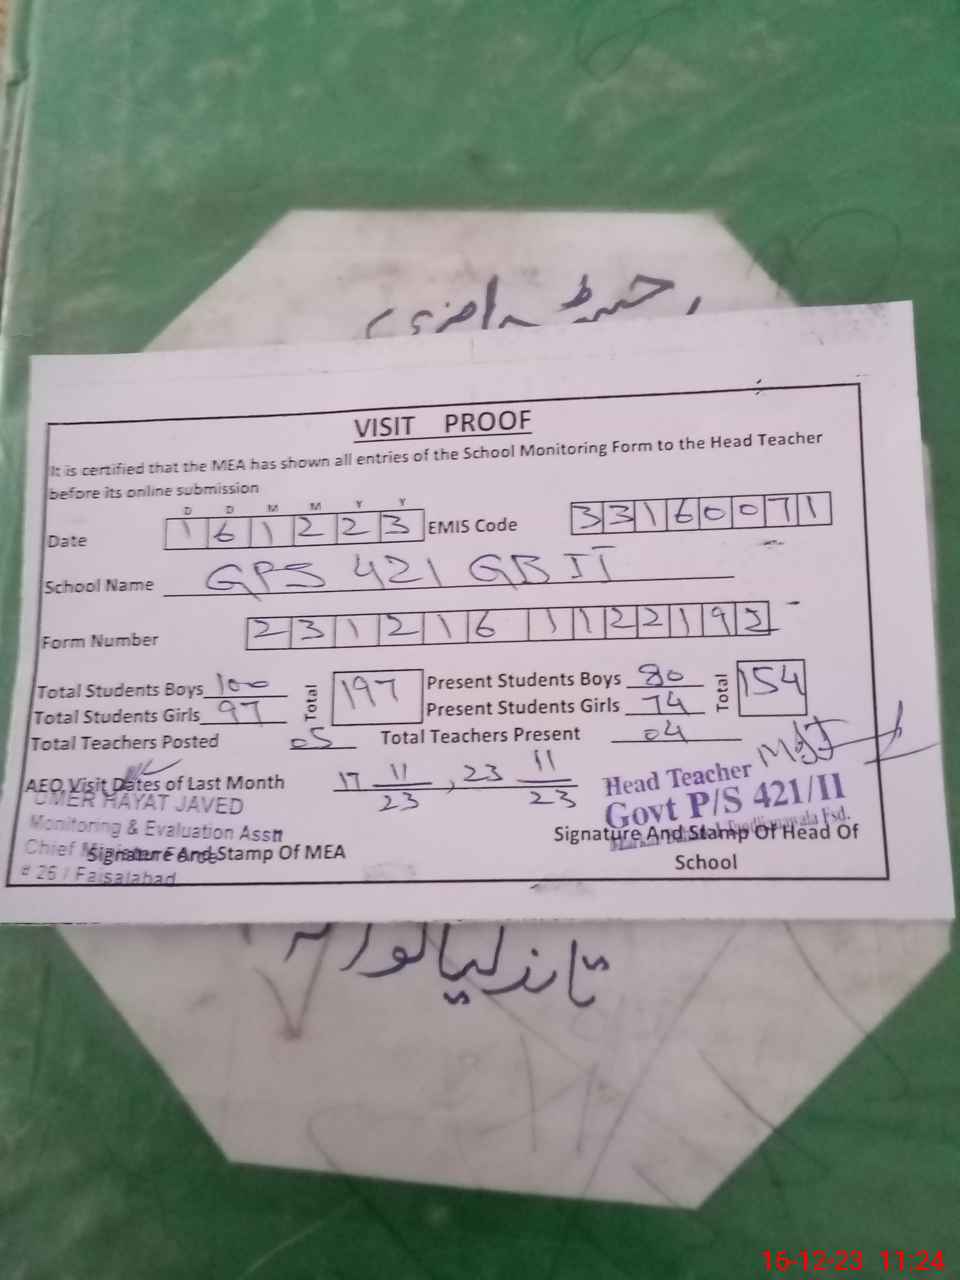 رجسٹر حاضری
VISIT PROOF
It is certified that the MEA has shown all entries of the School Monitoring Form to the Head Teacher
before its online submission
D D M M Y Y
Date 1 6 1 2 2 3 EMIS Code 3 3 1 6 0 0 7 1
School Name GPS 421 GB II
Form Number 2 3 1 2 1 6 1 1 2 2 1 9 2
Total Students Boys 100 Total 197 Present Students Boys 80 Total 154
Total Students Girls 97 Present Students Girls 74
Total Teachers Posted 05 Total Teachers Present 04
AEO Visit Dates of Last Month 17 11/23, 23 11/23
UMER HAYAT JAVED
Monitoring & Evaluation Asstt
Chief Minister
# 26 / Faisalabad
Signature And Stamp Of MEA
Head Teacher
Govt P/S 421/II
Signature And Stamp Of Head Of
School
تاندلیانوالہ
16-12-23 11:24